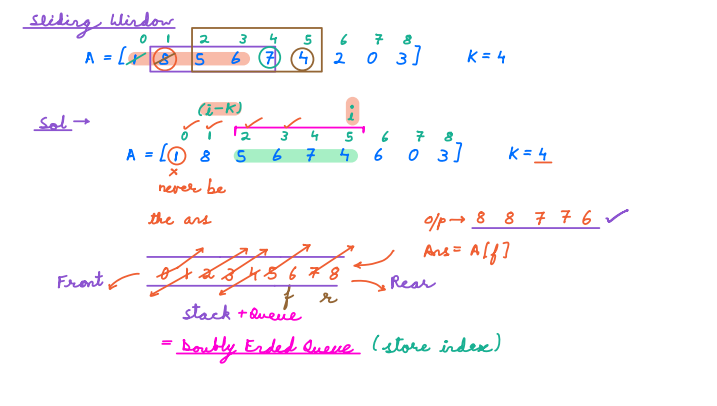 Sliding Window
0 1 2 3 4 5 6 7 8
A = [ 1 8 5 6 7 4 2 0 3 ] K = 4
Sol →
(i-K) i
0 1 2 3 4 5 6 7 8
A = [ 1 8 5 6 7 4 6 0 3 ] K = 4
x
never be
the ans
o/p → 8 8 7 7 6 ✓
Ans = A[f]
0 1 2 3 4 5 6 7 8
Front Rear
f r
stack + Queue
= Doubly Ended Queue (store index)